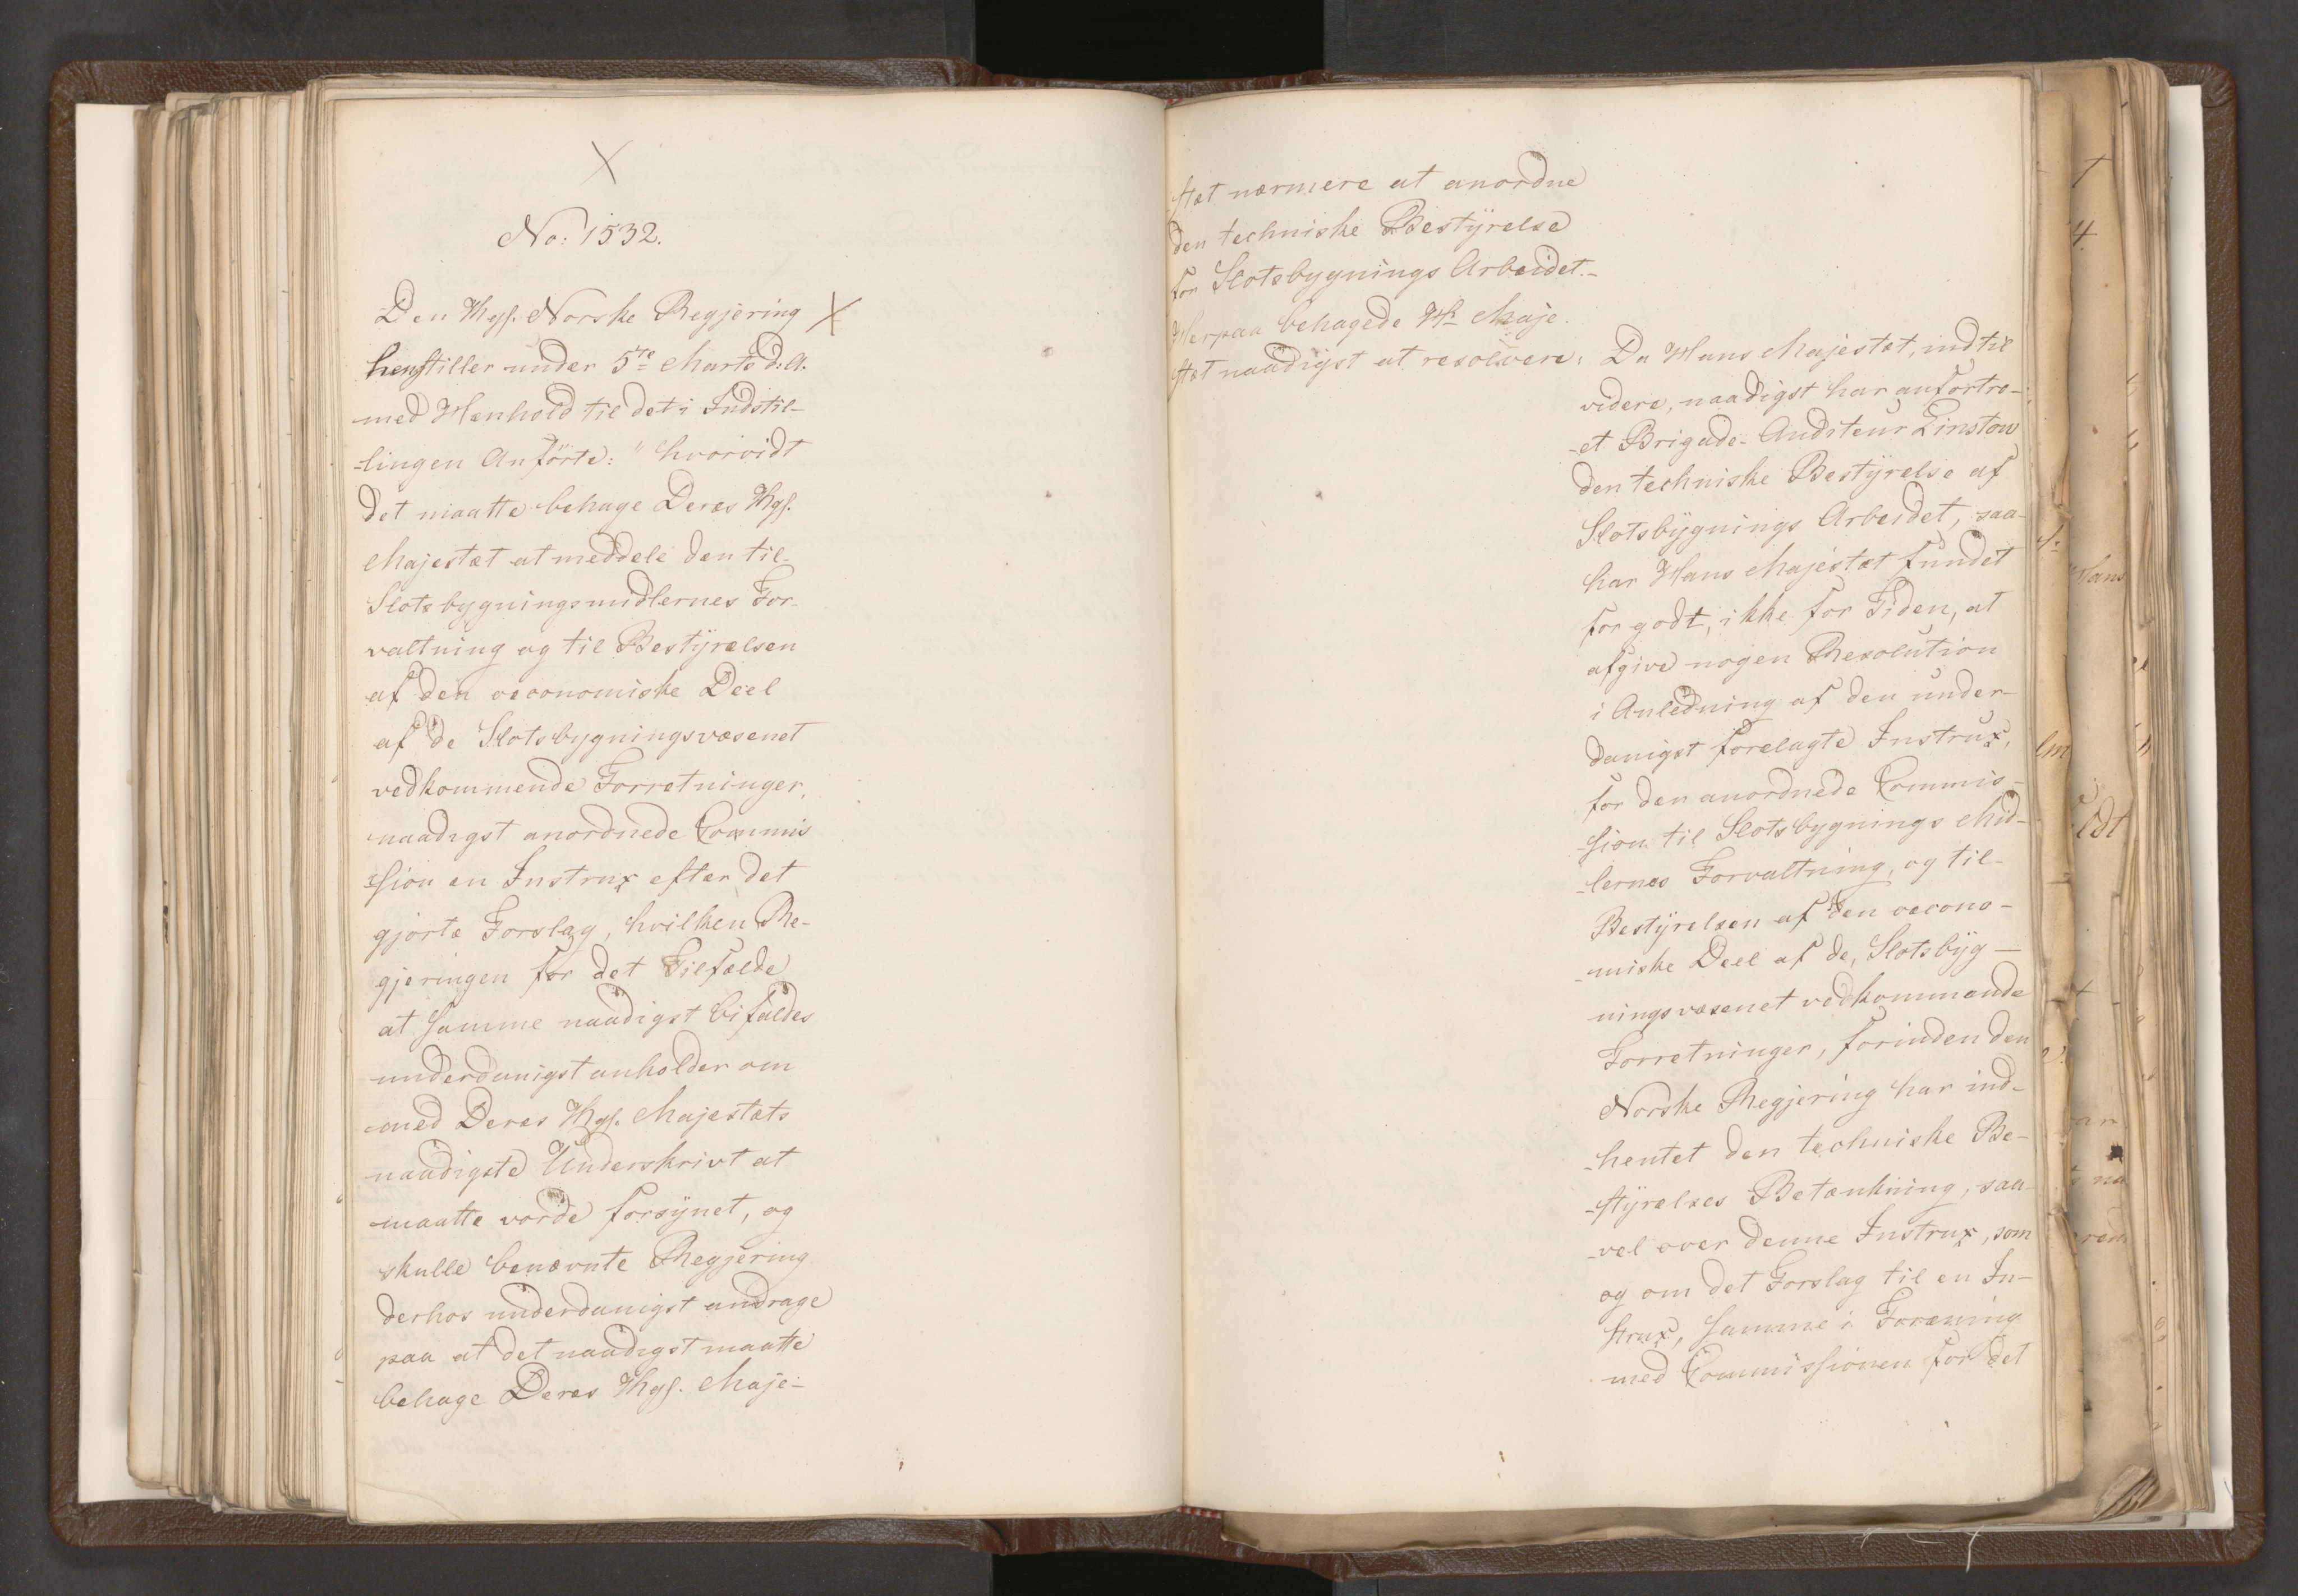 X
No: 1532.
Den Kgl. Norske Regjering X
henstiller under 5te Marts d: A.
med Henhold til det i Indstil-
-lingen Anförte: " hvorvidt
det maatte behage Deres Kgl.
Majestæt at meddele den til-
Slotsbygningsmidlernes For-
valtning og til Bestÿrelsen
af den oeconomiske Deel
af de Slotsbygningsvæsenet
vedkommende Forretninger,
naadigst anordnede Commis
-sion en Instrux efter det
gjorte Forslag, hvilken Re-
gjeringen for det Tilfælde
at samme naadigst bifaldes
underdanigst anholder om
med Deres Kgl. Majestæts
naadigste Underskrivt at
maatte vorde forsÿnet, og
skulle benævnte Regjering
derhos underdanigst andrage
paa at det naadigst maatte
behage Deres Kgl. Maje-
stæt nærmere at anordne
den techniske Bestÿrelse
for Slotsbygnings Arbeidet.-
Herpaa behagede Hs Maje-
stæt naadigst at resolvere: Da Hans Majestæt, indtil
videre, naadigst har anfortro-
-et Brigade-Auditeur Linstow
den techniske Bestÿrelse af
Slotsbÿgnings Arbeidet, saa-
har Hans Majestæt fundet
for godt, ikke for Tiden, at
afgive nogen Resolution
i Anledning af den under-
danigst forelagte Instrux,
for den anordnede Commis-
-sion til Slotsbygnings Mid-
-lernes Forvaltning, og til-
Bestÿrelsen af den oecono-
-miske Deel af de, Slotsbÿg-
ningsvæsenet vedkommende
Forretninger, forinden den
Norske Regjering har ind-
-hentet den techniske Be-
-stÿrelses Betænkning, saa-
-vel over denne Instrux, som
og om det Forslag til en In-
strux, samme i Forening
med Commissionen for det